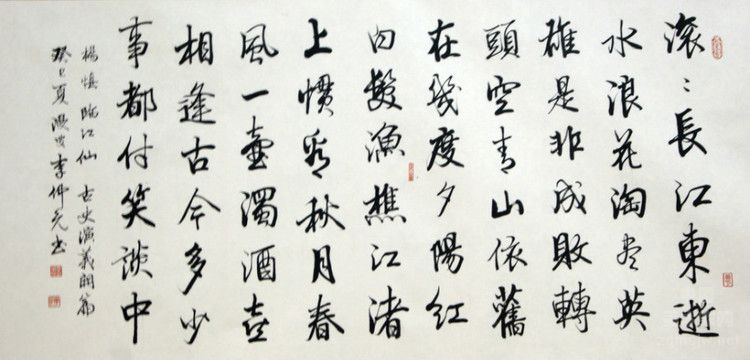 滚〻長江東逝
水浪花淘尽英
雄是非成敗轉
頭空青山依舊
在幾度夕陽紅
白髮漁樵江渚
上慣看秋月春
風一壺濁酒喜
相逢古今多少
事都付笑談中
楊慎臨江仙 古史演義開篇
癸巳夏 李仲元书